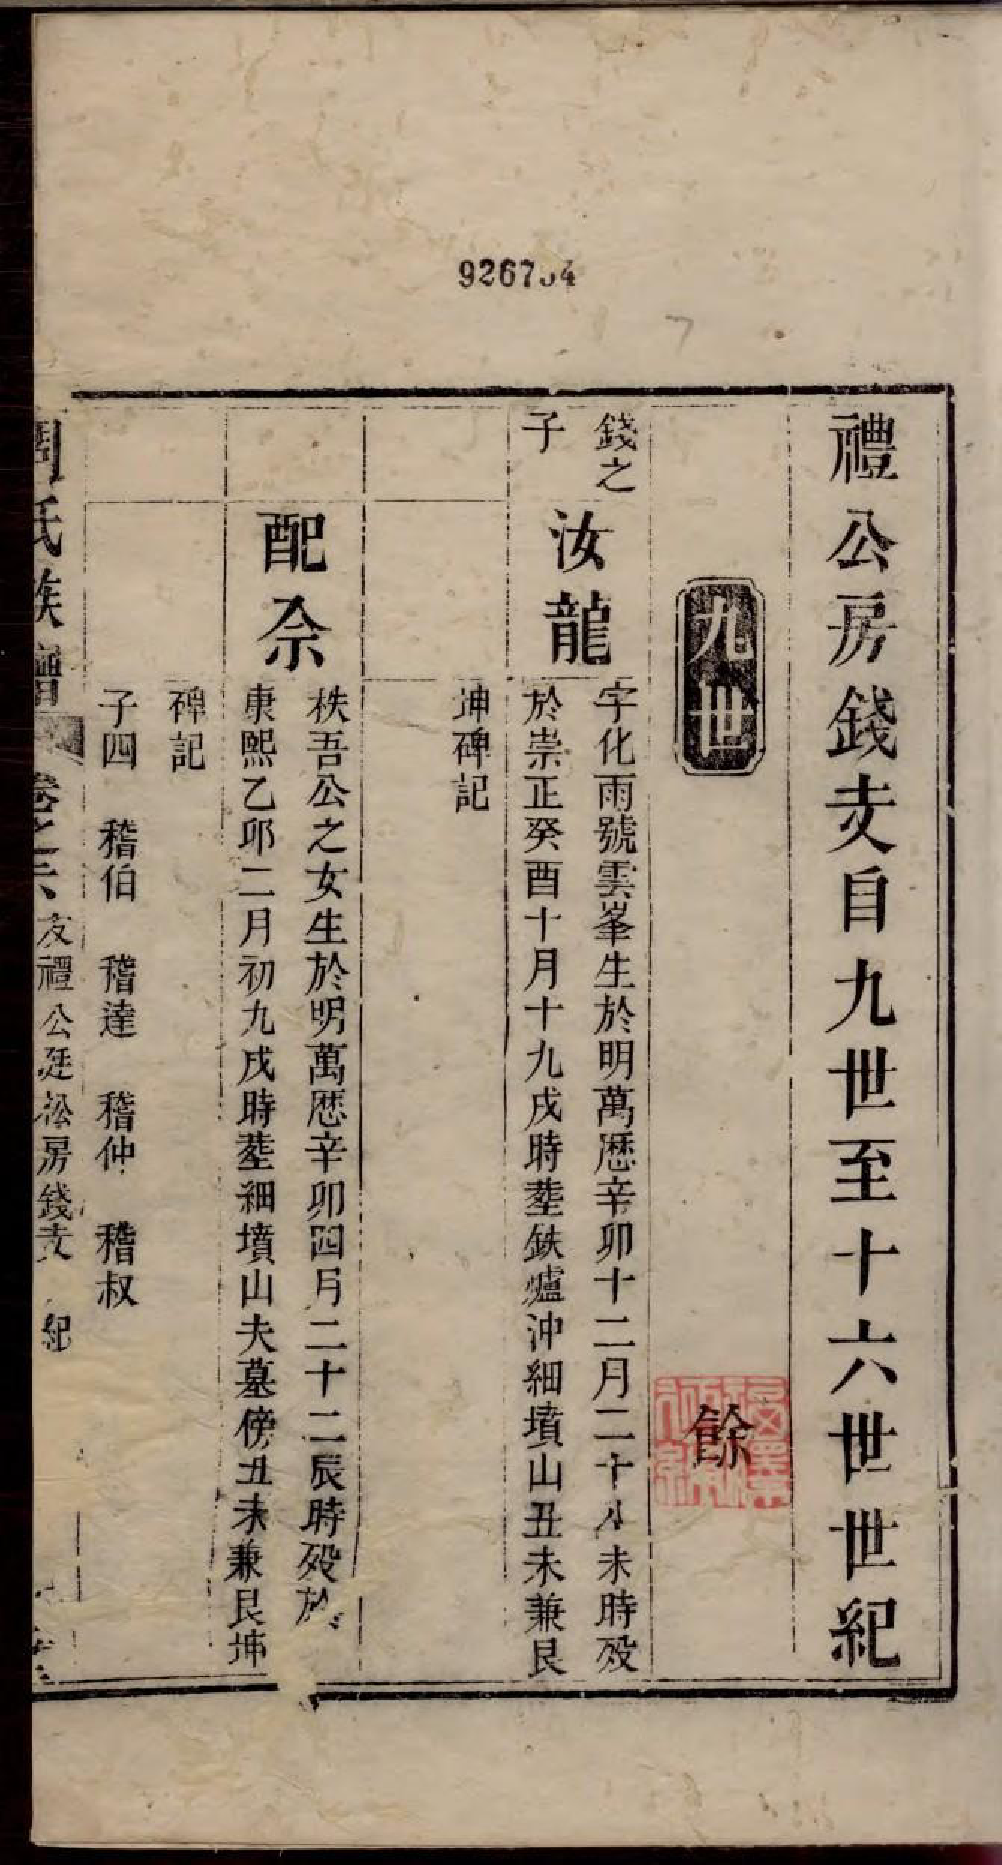 禮公房錢支自九世至十六世世紀
九世
餘
錢之
子
汝龍
字化雨號雲峯生於明萬歷辛卯十二月二十八未時歿
於崇正癸酉十月十九戌時塟鉄爐沖細墳山丑未兼艮
坤碑記
配佘
秩吾公之女生於明萬歷辛卯四月二十二辰時歿於
康熙乙卯二月初九戌時塟細墳山夫墓傍丑未兼艮坤
碑記
子四 稽伯 稽達 稽仲 稽叔
氏族譜 卷之六 友禮公廷松房錢支 紀
7